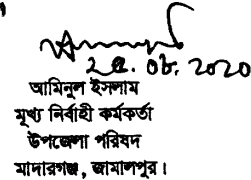 ২৫.০৮.২০২০
আমিনুল ইসলাম
মূখ্য নির্বাহী কর্মকর্তা
উপজেলা পরিষদ
মাদারগঞ্জ, জামালপুর।